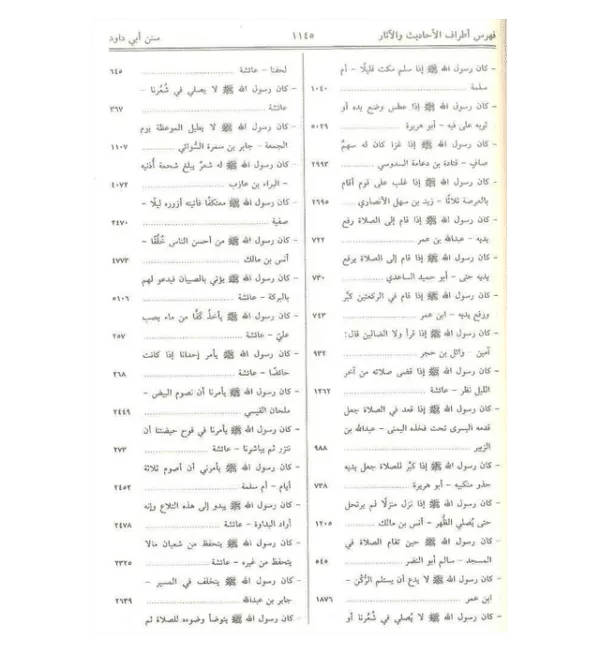 فهرس أطراف الأحاديث والآثار ١١٤٥ سنن أبي داود
- كان رسول الله ﷺ إذا سلم مكث قليلًا - أم
سلمة ١٠٤٠
- كان رسول الله ﷺ إذا عطس وضع يده أو
ثوبه على فيه - أبو هريرة ٥٠٢٩
- كان رسول الله ﷺ إذا غزا كان له سهمٌ
صافٍ - قتادة بن دعامة السدوسي ٢٩٩٣
- كان رسول الله ﷺ إذا غلب على قوم أقام
بالعرصة ثلاثًا - زيد بن سهل الأنصاري ٢٦٩٥
- كان رسول الله ﷺ إذا قام إلى الصلاة رفع
يديه - عبدالله بن عمر ٧٢٢
- كان رسول الله ﷺ إذا قام إلى الصلاة يرفع
يديه حتى - أبو حميد الساعدي ٧٣٠
- كان رسول الله ﷺ إذا قام في الركعتين كبَّر
ورفع يديه - ابن عمر ٧٤٣
- كان رسول الله ﷺ إذا قرأ ولا الضالين قال:
آمين - وائل بن حجر ٩٣٢
- كان رسول الله ﷺ إذا قضى صلاته من آخر
الليل نظر - عائشة ١٢٦٢
- كان رسول الله ﷺ إذا قعد في الصلاة جعل
قدمه اليسرى تحت فخذه اليمنى - عبدالله بن
الزبير ٩٨٨
- كان رسول الله ﷺ إذا كبَّر للصلاة جعل يديه
حذو منكبيه - أبو هريرة ٧٣٨
- كان رسول الله ﷺ إذا نزل منزلًا لم يرتحل
حتى يُصلي الظُهر - أنس بن مالك ١٢٠٥
- كان رسول الله ﷺ حين تقام الصلاة في
المسجد - سالم أبو النضر ٥٤٥
- كان رسول الله ﷺ لا يدع أن يستلم الرُّكن -
ابن عمر ١٨٧٦
- كان رسول الله ﷺ لا يُصلي في شُعُرنا أو
لحفنا - عائشة ٦٤٥
- كان رسول الله ﷺ لا يصلي في شُعُرنا -
عائشة ٣٦٧
- كان رسول الله ﷺ لا يطيل الموعظة يوم
الجمعة - جابر بن سمرة السُّوائي ١١٠٧
- كان رسول الله ﷺ له شعرٌ يبلغ شحمة أُذنيه
- البراء بن عازب ٤٠٧٢
- كان رسول الله ﷺ معتكفًا فأتيته أزوره ليلًا -
صفية ٢٤٧٠
- كان رسول الله ﷺ من أحسن الناس خُلُقًا -
أنس بن مالك ٤٧٧٣
- كان رسول الله ﷺ يؤتي بالصبيان فيدعو لهم
بالبركة - عائشة ٥١٠٦
- كان رسول الله ﷺ يأخذُ كَفًّا من ماء يصب
عليّ - عائشة ٢٥٧
- كان رسول الله ﷺ يأمر إحدانا إذا كانت
حائضًا - عائشة ٢٦٨
- كان رسول الله ﷺ يأمرنا أن نصوم البيض -
ملحان القيسي ٢٤٤٩
- كان رسول الله ﷺ يأمرنا في فوح حيضتنا أن
نتزر ثم يباشرنا - عائشة ٢٧٣
- كان رسول الله ﷺ يأمرني أن أصوم ثلاثة
أيام - أم سلمة ٢٤٥٢
- كان رسول الله ﷺ يبدو إلى هذه التلاع وإنه
أراد البداوة - عائشة ٢٤٧٨
- كان رسول الله ﷺ يتحفظ من شعبان مالا
يتحفظ من غيره - عائشة ٢٣٢٥
- كان رسول الله ﷺ يتخلف في المسير -
جابر بن عبدالله ٢٦٣٩
- كان رسول الله ﷺ يتوضأ وضوءه للصلاة ثم